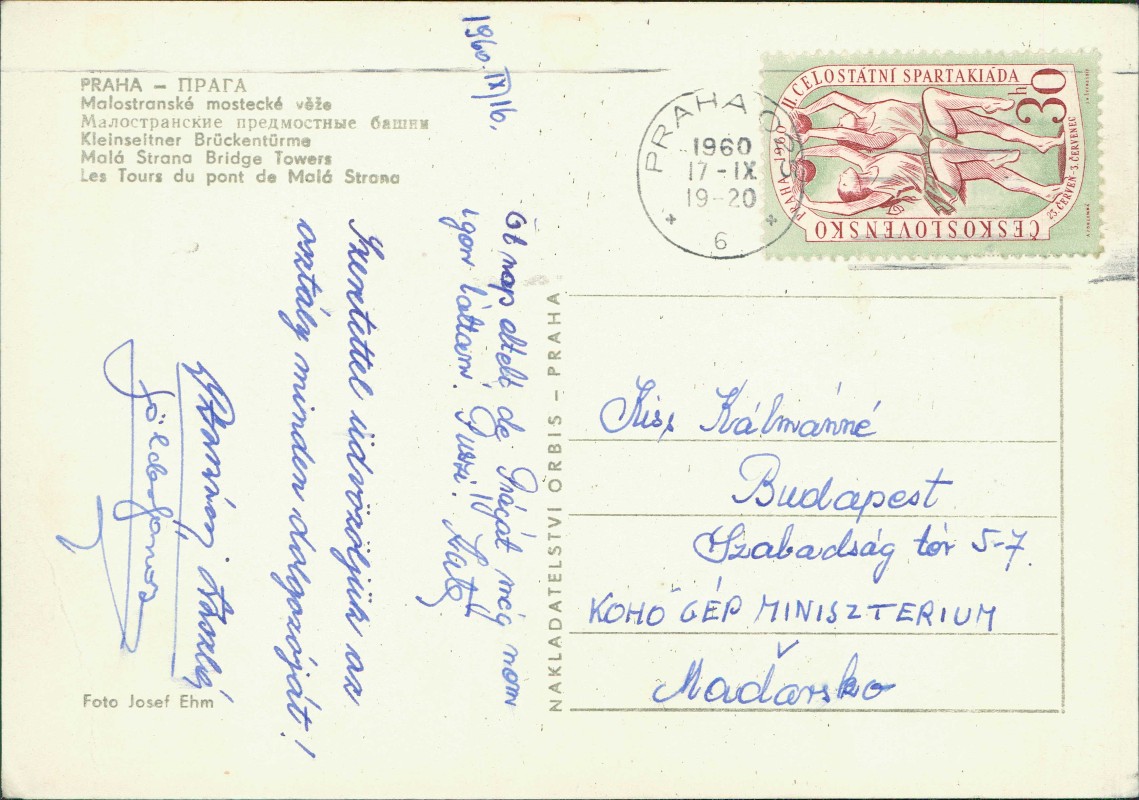 PRAHA – ПРАГА
Malostranské mostecké věže
Малостранские предмостные башни
Kleinseitner Brückentürme
Malá Strana Bridge Towers
Les Tours du pont de Malá Strana
1960. IX/16.
Öt nap eltelt de Prágát még nem
igen láttam. Puszi!
Szeretettel üdvözöljük az
osztály minden dolgozóját!
László
Foto Josef Ehm
NAKLADATELSTVÍ ORBIS – PRAHA
PRAHA
1960
17-IX
19-20
6
II. CELOSTÁTNÍ SPARTAKIÁDA
PRAHA 1960
30 h
23. ČERVEN-3. ČERVENEC
ČESKOSLOVENSKO
Kiss Kálmánné
Budapest
Szabadság tér 5-7.
KOHÓ GÉP MINISZTERIUM
Maďarsko